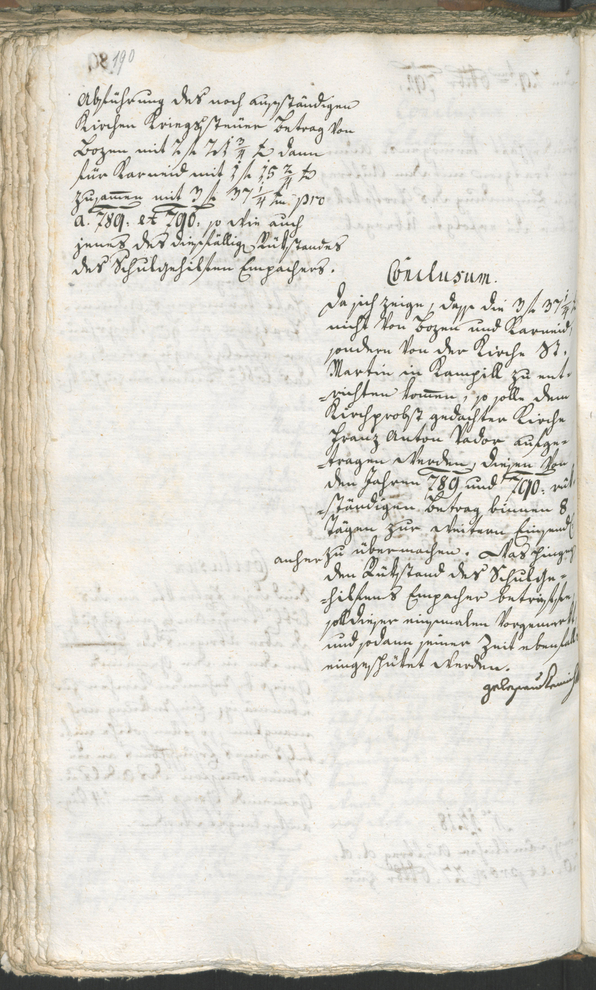 190
Abführung des noch ausständigen
Kirchen Kriegssteüer Betrag von
Bozen mit 2 f 21 3/4 x dann
für Karneid mit 1 f 15 2/4 x
zusammen mit 3 f 37 1/4 x pro
a. 789: et 790: so wie auch
jenes des diesfälligen Rükstandes
des Schulgehilfen Empachers.
Conclusum.
Da sich zeige, dass die 3 f 37 1/4
nicht von Bozen und Karneid,
sondern von der Kirche St.
Martin in Kampill zu ent-
-richten kommen, so solle dem
Kirchprobst gedachter Kirche
Franz Anton Pador aufge-
-tragen werden, diesen von
den Jahren 789 und 790: rük-
-ständigen Betrag binnen 8
Tägen zur weitern Einsend
anher zu übermachen. Was hinge
den Rükstand des Schulge-
-hilfens Empacher betrifft,
soll dieser einsmalen vorgemerkt
und sodann seiner Zeit ebenfalls
eingeschikt werden.